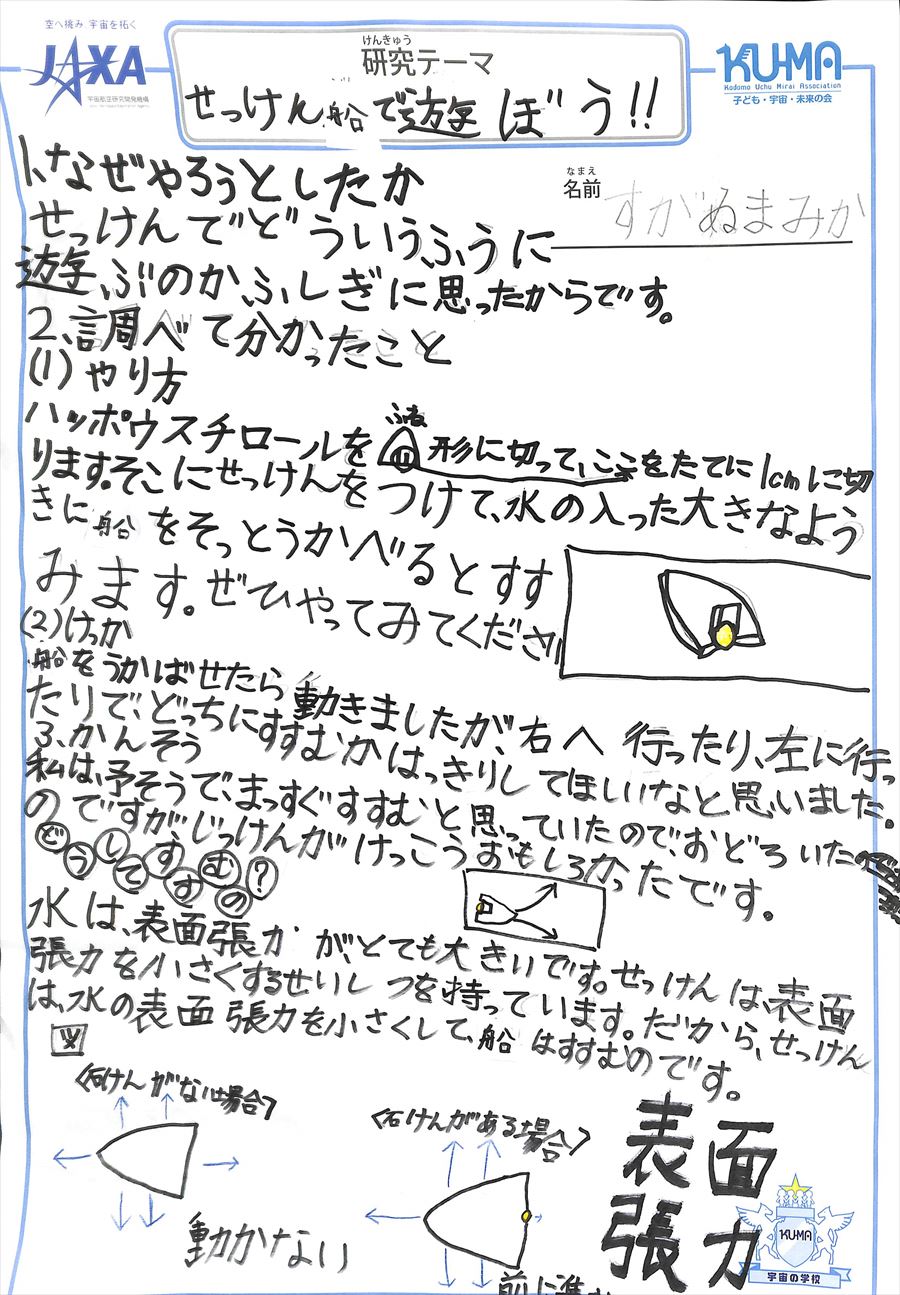 空へ挑み 宇宙を拓く
JAXA
宇宙航空研究開発機構
けんきゅう
研究テーマ
せっけん船で遊ぼう!!
KU-MA
Kodomo Uchu Mirai Association
子ども・宇宙・未来の会
1、なぜやろうとしたか
なまえ
名前 すがぬまみか
せっけんでどういうふうに
遊ぶのかふしぎに思ったからです。
2、調べて分かったこと
(1)やり方
ふね
ハッポウスチロールを 形に切って、ここをたてに1cmに切
ります。そこにせっけんをつけて、水の入った大きなよう
きに船をそっとうかべるとすす
みます。ぜひやってみてください
(2)けっか
船をうかばせたら動きましたが、右へ行ったり、左に行っ
たりで、どっちにすすむかはっきりしてほしいなと思いました。
3、かんそう
私は、予そうで、まっすぐすすむと思っていたので、おどろいた
のですがじっけんがけっこうおもしろかったです。
どうしてすすむの?
水は、表面張力が、とても大きいです。せっけんは、表面
張力を小さくするせいしつを持っています。だから、せっけん
は、水の表面張力を小さくして、船はすすむのです。
図
〈石けんがない場合〉
〈石けんがある場合〉
動かない
前に進む
表面
張力
KU-MA
宇宙の学校